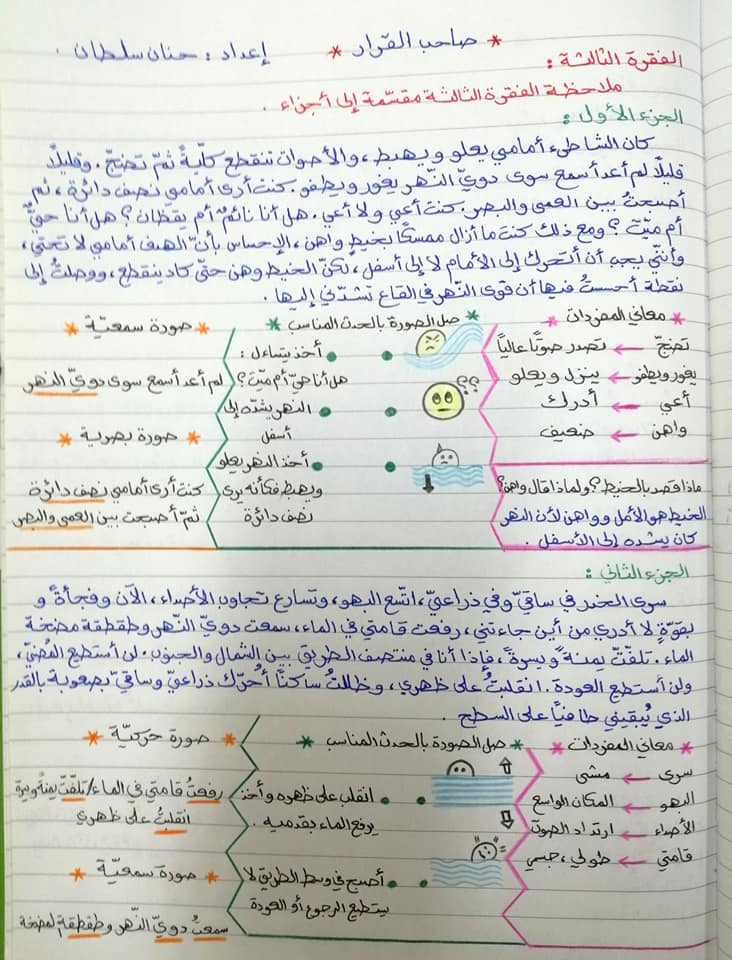 * صاحب القرار * إعداد : حنان سلطان .
الفقرة الثالثة :
ملاحظة الفقرة الثالثة مقسّمة إلى أجزاء .
الجزء الأول :
كان الشاطىء أمامي يعلو ويهبط ، والأصوات تنقطع كلّيةً ثمّ تضجّ . وقليلًا
قليلًا لم أعد أسمع سوى دويّ النّهر يغور ويطفو . كنت أرى أمامي نصف دائرة ، ثم
أصبحتُ بين العمى والبصر . كنت أعي ولا أعي . هل أنا نائمٌ أم يقظان ؟ هل أنا حيٌّ
أم ميّت ؟ ومع ذلك كنت ما أزال ممسكًا بخيطٍ واهن ، الإحساس بأنّ الهدف أمامي لا تحتي ،
وأنّني يجب أن أتحرك إلى الأمام لا إلى أسفل ، لكنّ الخيط وهن حتّى كاد ينقطع ، ووصلتُ إلى
نقطة أحسستُ فيها أن قوى النّهر في القاع تشدّني إليها .
* معاني المفردات *
تضجّ ← تصدر صوتًا عاليًا
يغور ويطفو ← ينزل ويعلو
أعي ← أدرك
واهن ← ضعيف
ماذا قصد بالخيط ؟ ولماذا قال واهن ؟
الخيط هو الأمل وواهن لأن النهر
كان يشده إلى الأسفل .
* صل الصورة بالحدث المناسب *
أخذ يتساءل :
هل أنا حيّ أم ميّت ؟
??
النهر يشدّه إلى
أسفل
أخذ النهر يعلو
ويهبط فكأنه يرى
نصف دائرة
* صورة سمعيّة *
لم أعد أسمع سوى دويّ النهر
* صورة بصرية *
كنت أرى أمامي نصف دائرة
ثمّ أصبحت بين العمى والبصر
الجزء الثاني :
سرى الخدر في ساقيّ وفي ذراعيّ ، اتّسع البهو ، وتسارع تجاوب الأصداء ، الآن وفجأةً و
بقوّة لا أدري من أين جاءتني ، رفعت قامتي في الماء ، سمعت دويّ النّهر وطقطقة مضخة
الماء . تلفّتّ يمنةً ويسرةً ، فإذا أنا في منتصف الطريق بين الشمال والجنوب . لن أستطيع المُضيّ ،
ولن أستطيع العودة . انقلبتُ على ظهري ، وظللتُ ساكنًا أُحرّك ذراعيّ وساقيّ بصعوبة بالقدر
الذي يُبقيني طافيًا على السطح .
* معاني المفردات *
سرى ← مشى
البهو ← المكان الواسع
الأصداء ← ارتداد الصوت
قامتي ← طولي ، جسمي
* صل الصورة بالحدث المناسب *
انقلب على ظهره وأخذ
يرفع الماء بقدميه .
أصبح في وسط الطريق لا
يستطيع الرجوع أو العودة
* صورة حركيّة *
رفعتُ قامتي في الماء / تلفّتّ يمنةً ويسرة
انقلبتُ على ظهري
* صورة سمعيّة *
سمعتُ دويّ النّهر وطقطقة لمضخة